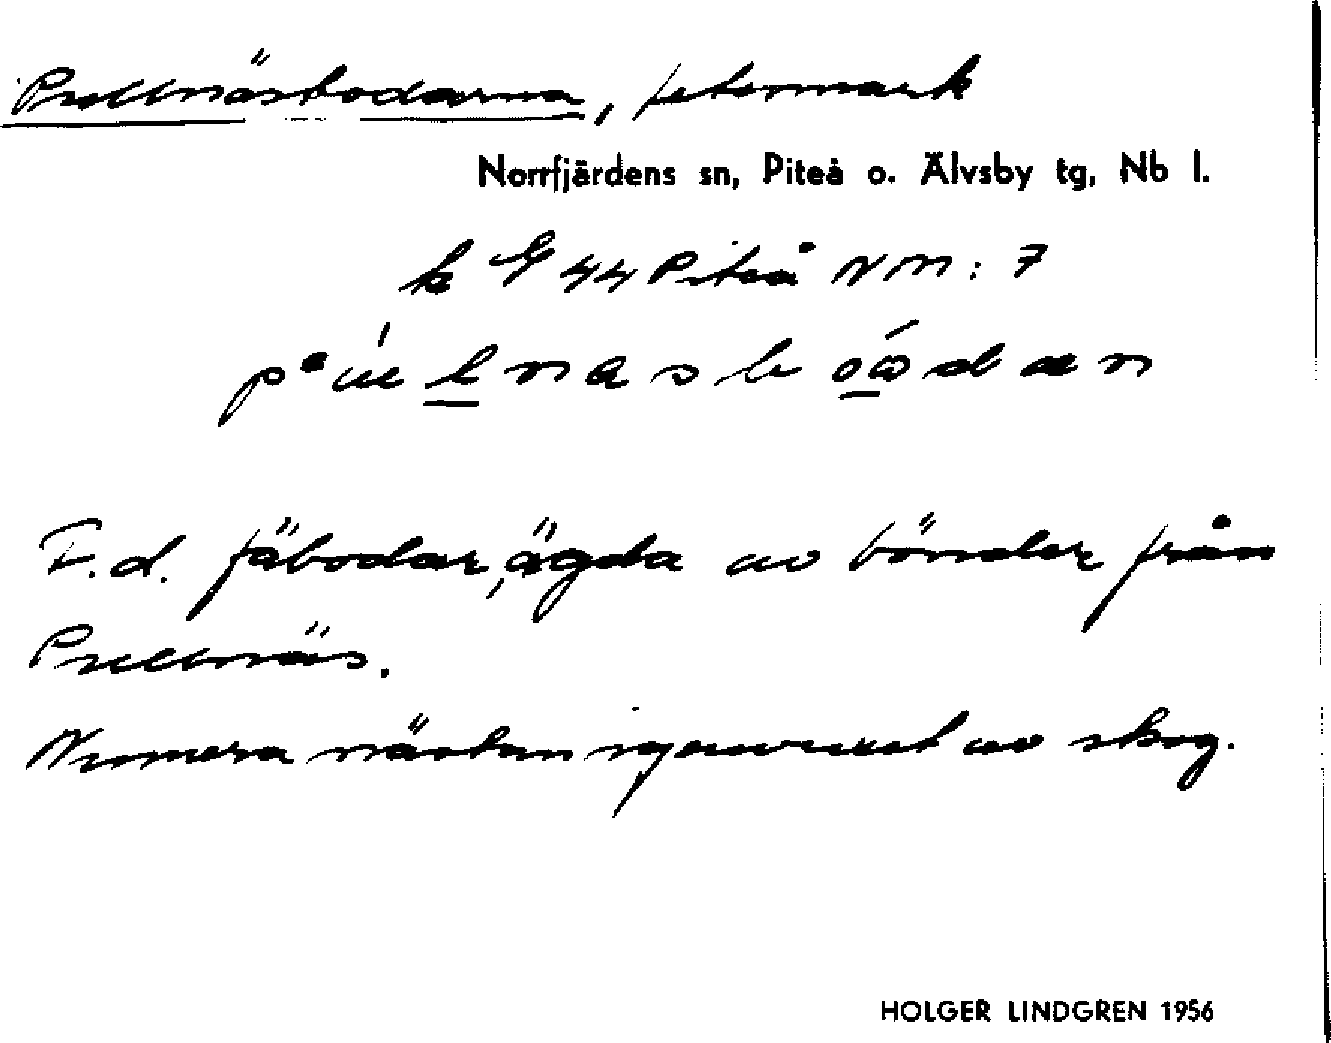 Pullnäsbodarna, betesmark
Norrfjärdens sn, Piteå o. Älvsby tg, Nb l.
44 Piteå NM: 7
F.d. fäbodar, ägda av bönder från
Pullnäs.
Numera nästan igenvuxet av skog.
HOLGER LINDGREN 1956